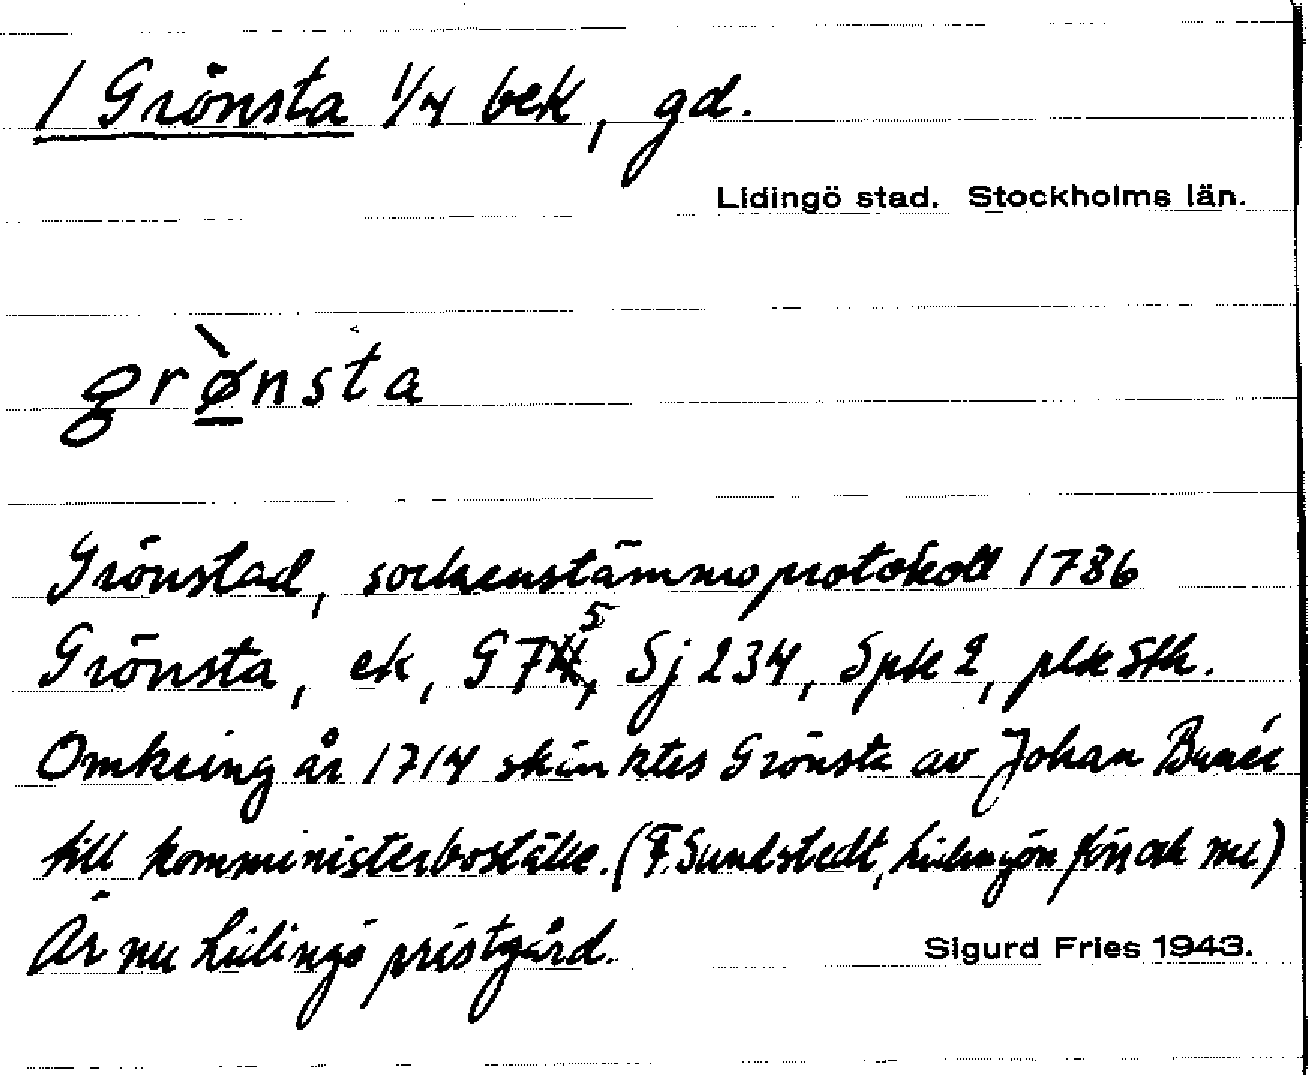 / Grönsta 1/4 bek, gd.
Lidingö stad. Stockholms län.
grø̀nsta
Grönstad, sockenstämmoprotokoll 1786
Grönsta, ek, G 75, Sj 234, Spk 2, plk Sth.
Omkring år 1714 skänktes Grönsta av Johan Bunér
till komministerboställe. (F. Sundstedt, Lidingön förr och nu)
Är nu Lidingö prästgård.
Sigurd Fries 1943.